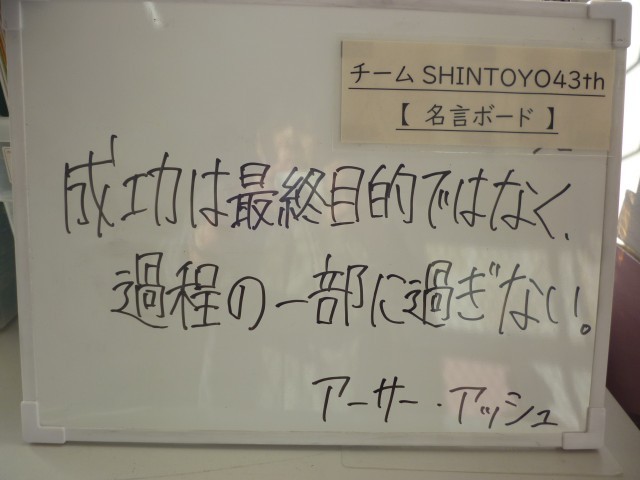 チーム SHINTOYO43th
【 名言ボード 】
成功は最終目的ではなく、
過程の一部に過ぎない。
アーサー・アッシュ